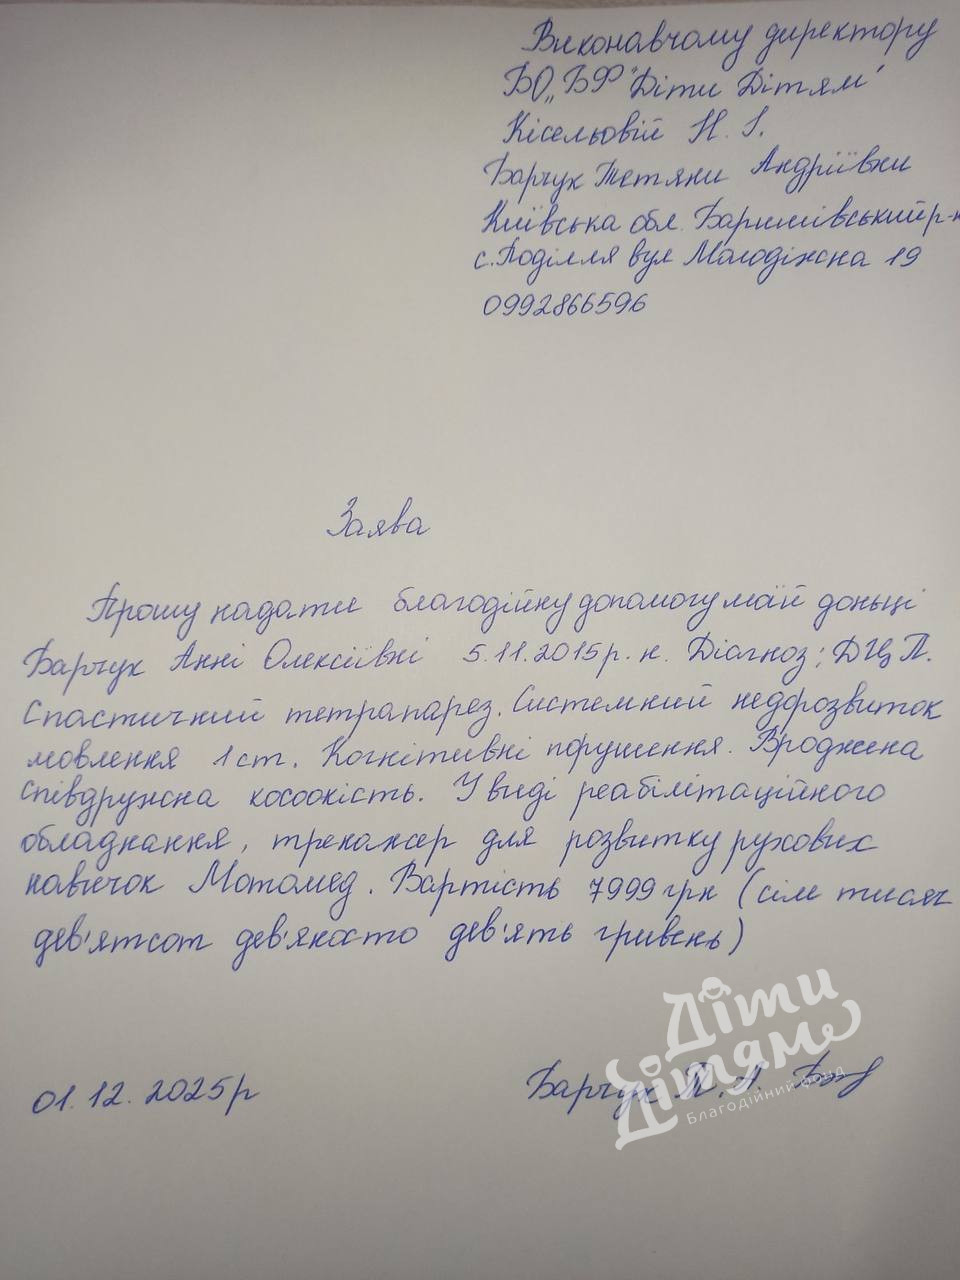 Виконавчому директору
БО „БФ "Діти Дітям"
Кісельовій Н. І.
Барчук Тетяни Андріївки
Київська обл. Баришівський р-н
с. Поділля вул Молодіжна 19
0992866596
Заява
Прошу надати благодійну допомогу маїй доньці
Барчук Анні Олексіївні 5.11.2015 р. н. Діагноз: ДЦП.
Спастичний тетрапарез. Системний недорозвиток
мовлення 1 ст. Когнітивні порушення. Вроджена
співдружна косоокість. У виді реабілітаційного
обладнання, тренажер для розвитку рухових
навичок Мотомед. Вартість 7999 грн (сім тисяч
дев'ятсот дев'яносто дев'ять гривень)
Діти
Дітям
Благодійний фонд
01.12.2025р Барчук Т. А.